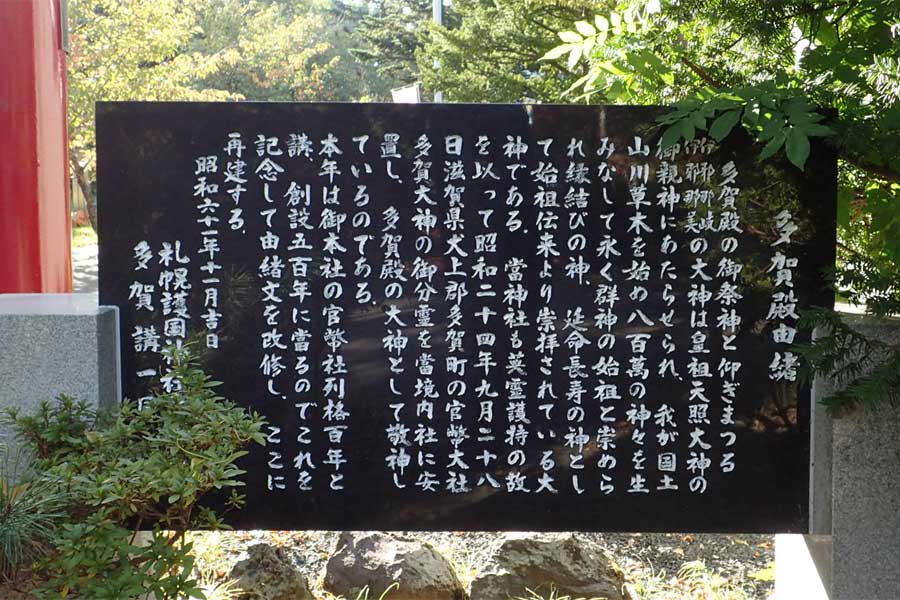 多賀殿由緒
多賀殿の御祭神と仰ぎまつる
伊邪那岐 伊邪那美の大神は皇祖天照大神の
御親神にあたらせられ、我が国土
山川草木を始め八百萬の神々を生
みなして永く群神の始祖と崇めら
れ縁結びの神、延命長寿の神とし
て始祖伝来より崇拝されている大
神である。當神社も英霊護持の故
を以って昭和二十四年九月二十八
日滋賀県犬上郡多賀町の官幣大社
多賀大神の御分霊を當境内社に安
置し、多賀殿の大神として敬神し
ているのである。
本年は御本社の官幣社列格百年と
講、創設五百年に當るのでこれを
記念して由緒文を改修し、ここに
再建する。
昭和六十一年十一月吉日
札幌護国神社
多賀講一同